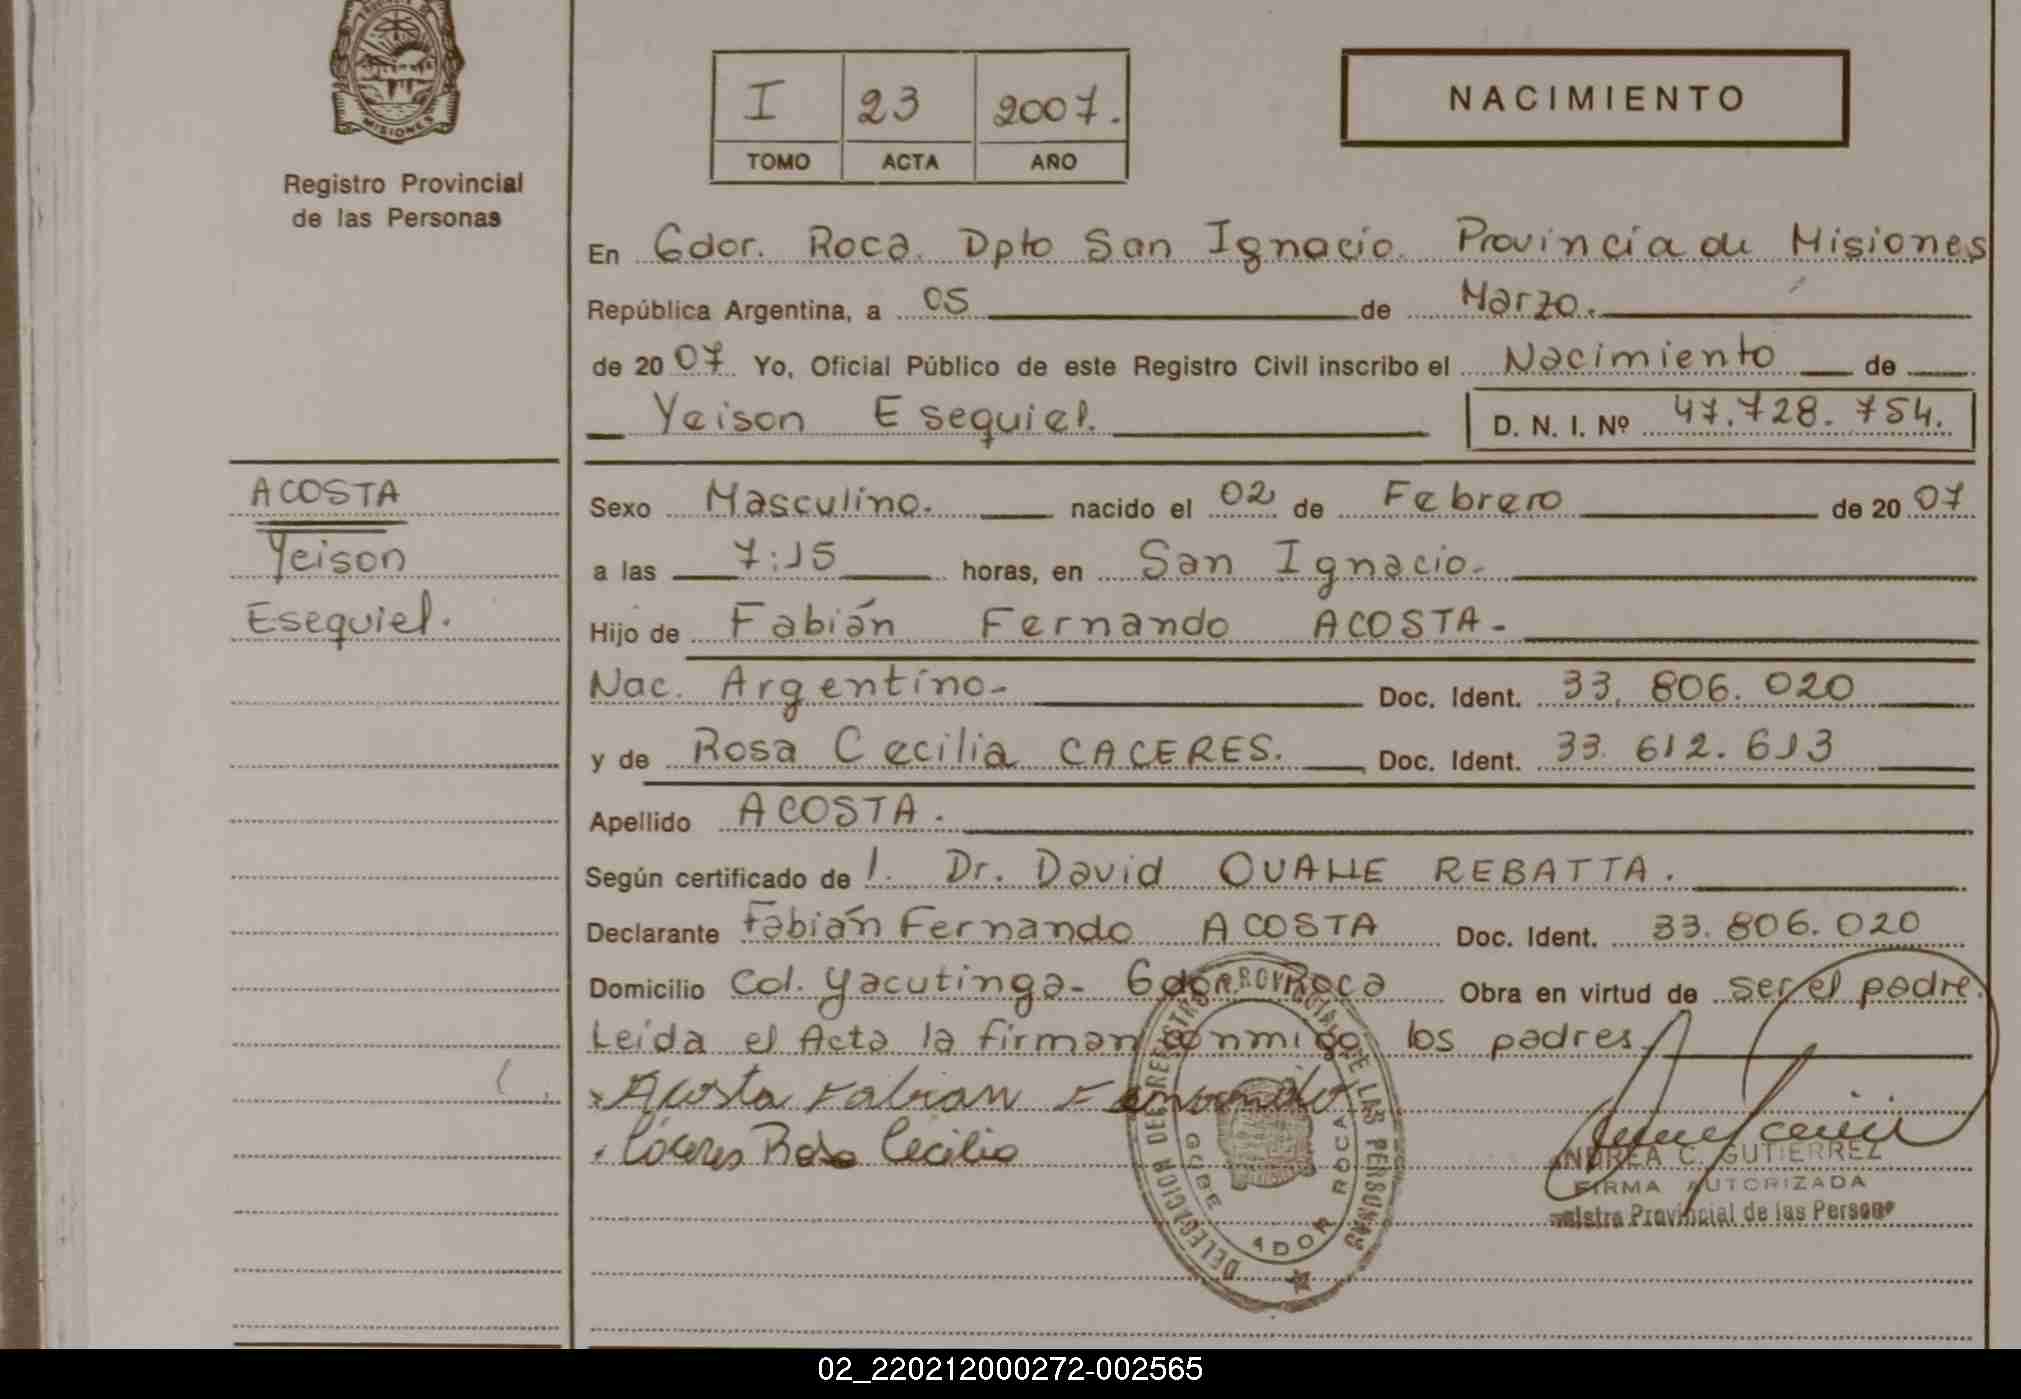 MISIONES
Registro Provincial
de las Personas
I 23 2007.
TOMO ACTA AÑO
NACIMIENTO
En Gdor. Roca. Dpto San Ignacio. Provincia de Misiones
República Argentina, a 05 de Marzo.
de 2007 Yo, Oficial Público de este Registro Civil inscribo el Nacimiento de
Yeison Esequiel.
D. N. I. Nº 47.728.754.
ACOSTA
Yeison
Esequiel.
Sexo Masculino. nacido el 02 de Febrero de 2007
a las 7:15 horas, en San Ignacio.
Hijo de Fabián Fernando ACOSTA-
Nac. Argentino- Doc. Ident. 33.806.020
y de Rosa Cecilia CACERES. Doc. Ident. 33.612.613
Apellido ACOSTA.
Según certificado de l. Dr. David OUALLE REBATTA.
Declarante Fabián Fernando ACOSTA Doc. Ident. 33.806.020
Domicilio Col. Yacutinga- Gdor. Roca Obra en virtud de ser el padre.
Leída el Acta la firman conmigo los padres.
Acosta Fabian Fernando
Cáceres Rosa Cecilia
ANDREA C. GUTIERREZ
FIRMA AUTORIZADA
Provincial de las Personas
02_220212000272-002565